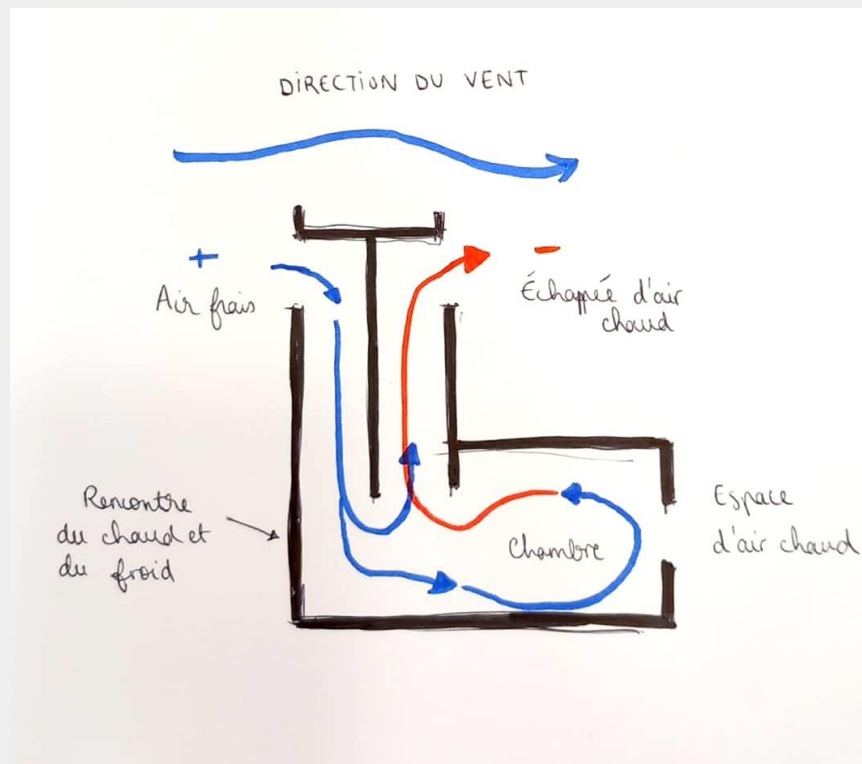 DIRECTION DU VENT
+
-
Air frais
Échappée d'air
chaud
Rencontre
du chaud et
du froid
Chambre
Espace
d'air chaud